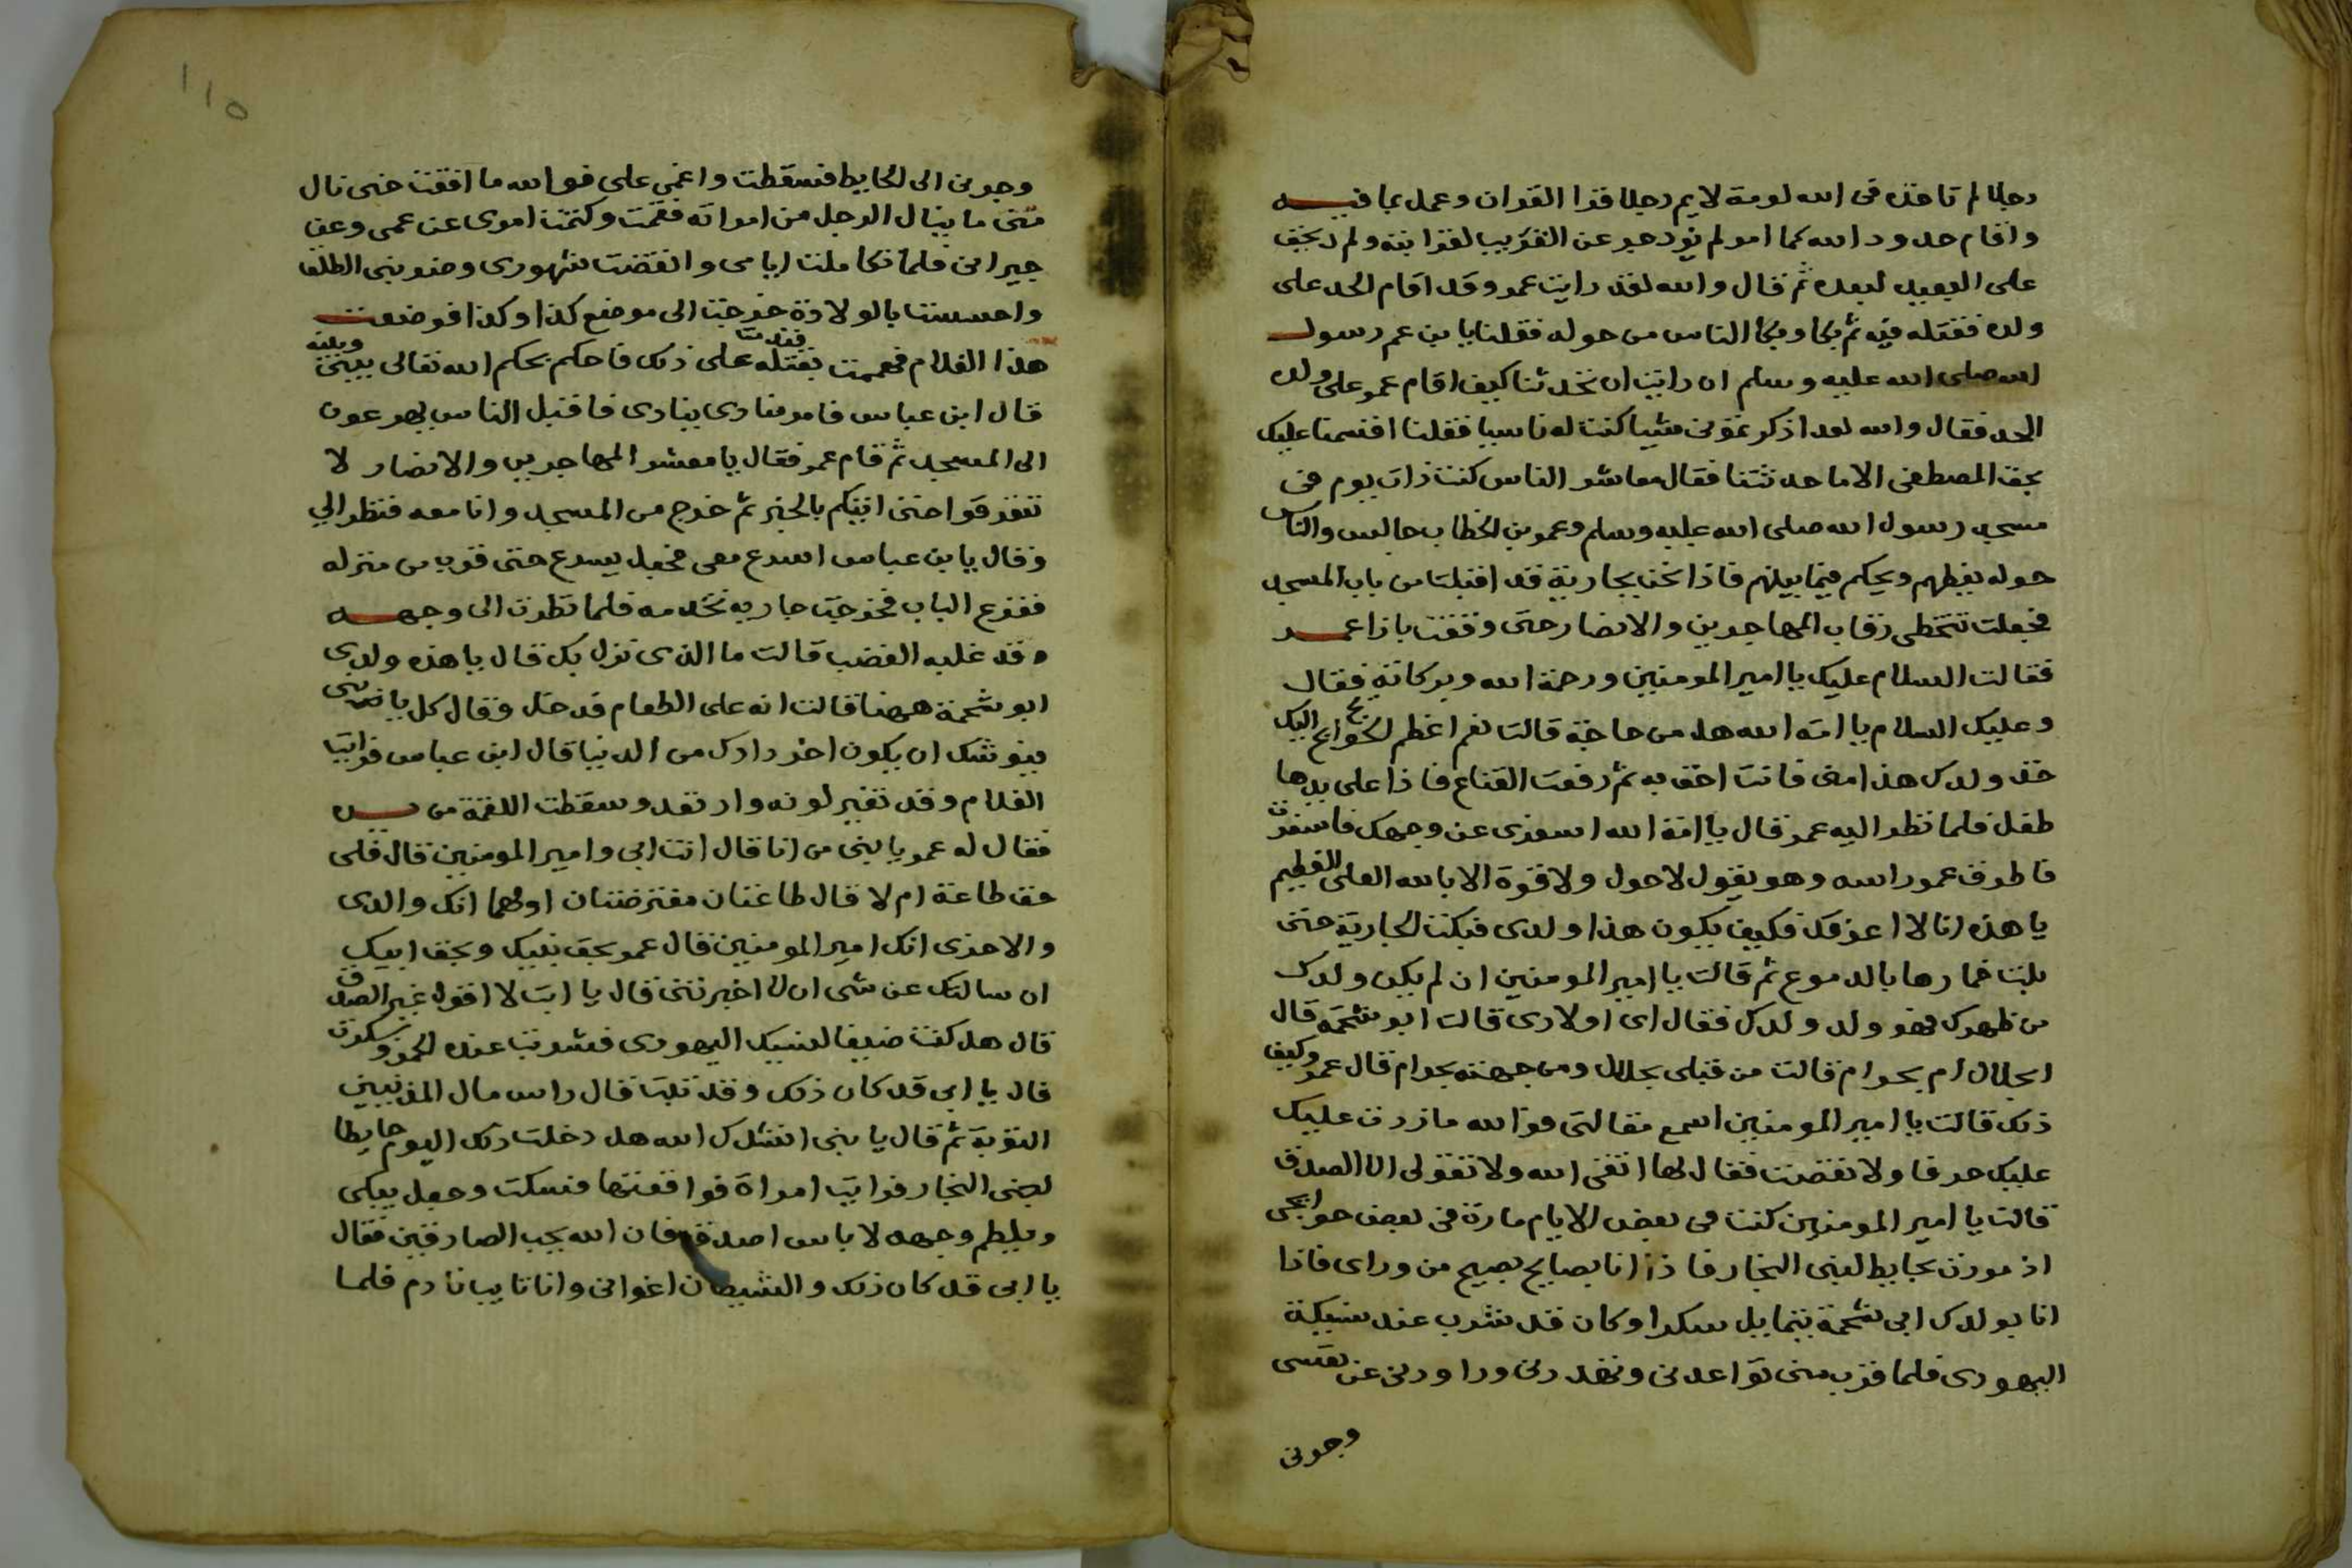 رجلا لم تاخذه فى الله لومة لايم رجلا قرا القران وعمل بما فيه
واقام حدود الله كما امر لم يزدجر عن القريب لقرابته ولم يخف
على البعيد لبعده ثم قال والله لقد رايت عمر وقد اقام الحد على
ولده فقتله فيه ثم بكا وبكا الناس من حوله فقلنا يا بن عم رسول
الله صلى الله عليه وسلم ان رايت ان تحدثنا كيف اقام عمر على ولده
الحد فقال والله لقد اذكرتمونى شيا كنت له ناسيا فقلنا اقسمنا عليك
بحق المصطفى الا ما حدثتنا فقال معاشر الناس كنت ذات يوم فى
مسجد رسول الله صلى الله عليه وسلم وعمر بن الخطاب جالس والناس
حوله يعظهم ويحكم فيما بينهم فاذا نحن بجارية قد اقبلت من باب المسجد
فجعلت تتخطى رقاب المهاجرين والانصار حتى وقفت بازا عمر
فقالت السلام عليك يا امير المومنين ورحمة الله وبركاته فقال
وعليك السلام يا امة الله هل من حاجة قالت نعم اعظم الحوايج اليك
خذ ولدك هذا منى فانت احق به ثم رفعت القناع فاذا على يدها
طفل فلما نظر اليه عمر قال يا امة الله اسفرى عن وجهك فاسفرت
فاطرق عمر راسه وهو يقول لا حول ولا قوة الا بالله العلى العظيم
يا هذه انا لا اعرفك فكيف يكون هذا ولدى فبكت الجارية حتى
بلت خمارها بالدموع ثم قالت يا امير المومنين ان لم يكن ولدك
من ظهرك فهو ولد ولدك فقال اى اولادى قالت ابو شحمه قال
ابحلال ام بحرام قالت من قبلى بحلال ومن جهته بحرام قال عمر وكيف
ذلك قالت يا امير المومنين اسمع مقالتى فوالله ما زدت عليك
عليك حرفا ولا نقصت فقال لها اتقى الله ولا تقولى الا الصدق
قالت يا امير المومنين كنت فى بعض الايام مارة فى بعض حوايجى
اذ مررت بحايط لبنى النجار فاذا انا بصايح يصيح من وراى فاذا
انا بولدك ابى شحمة يتمايل سكرا وكان قد شرب عند نسيكة
اليهودى فلما قرب منى تواعدنى وتهددنى وراودنى عن نفسى
وجرنى
110
وجرنى الى الحايط فسقطت واغمى على فوالله ما افقت حتى نال
منى ما ينال الرجل من امراته فقمت وكتمت امرى عن عمى وعن
جيرانى فلما تكاملت ايامى وانقضت شهورى وضربنى الطلق
واحسست بالولادة خرجت الى موضع كذا وكذا فوضعت
هذا الغلام فهممت بقتله فندمت على ذلك فاحكم بحكم الله تعالى بينى وبينه
قال ابن عباس فامر منادى ينادى فاقبل الناس يهرعون
الى المسجد ثم قام عمر فقال يا معشر المهاجرين والانصار لا
تتفرقوا حتى اتيكم بالخبر ثم خرج من المسجد وانا معه فنظر الي
وقال يا بن عباس اسرع معى فجعل يسرع حتى قرب من منزله
فقرع الباب فخرجت جاريه تخدمه فلما نظرت الى وجهه
وقد غلبه الغضب قالت ما الذى نزل بك قال يا هذه ولدى
ابو شحمة ههنا قالت انه على الطعام فدخل وقال كل يا بنى
فيوشك ان يكون اخر زادك من الدنيا قال ابن عباس فرايت
الغلام وقد تغير لونه وارتعد وسقطت اللقمة من يده
فقال له عمر يا بنى من انا قال انت ابى وامير المومنين قال فلى
حق طاعة ام لا قال طاعتان مفترضتان اولهما انك والدى
والاخرى انك امير المومنين قال عمر بحق نبيك وبحق ابيك
ان سالتك عن شى الا اخبرتنى قال يا ابت لا اقول غير الصدق
قال هل كنت ضيفا لنسيك اليهودى فشربت عنده الخمر وسكرت
قال يا ابى قد كان ذلك وقد تبت قال راس مال المذنبين
التوبة ثم قال يا بنى انشدك الله هل دخلت ذلك اليوم حايطا
لبنى النجار فرايت امراة فواقعتها فسكت وجعل يبكى
ويلطم وجهه لا باس اصدق فان الله يحب الصادقين فقال
يا ابى قد كان ذلك والشيطان اغوانى وانا تايب نادم فلما